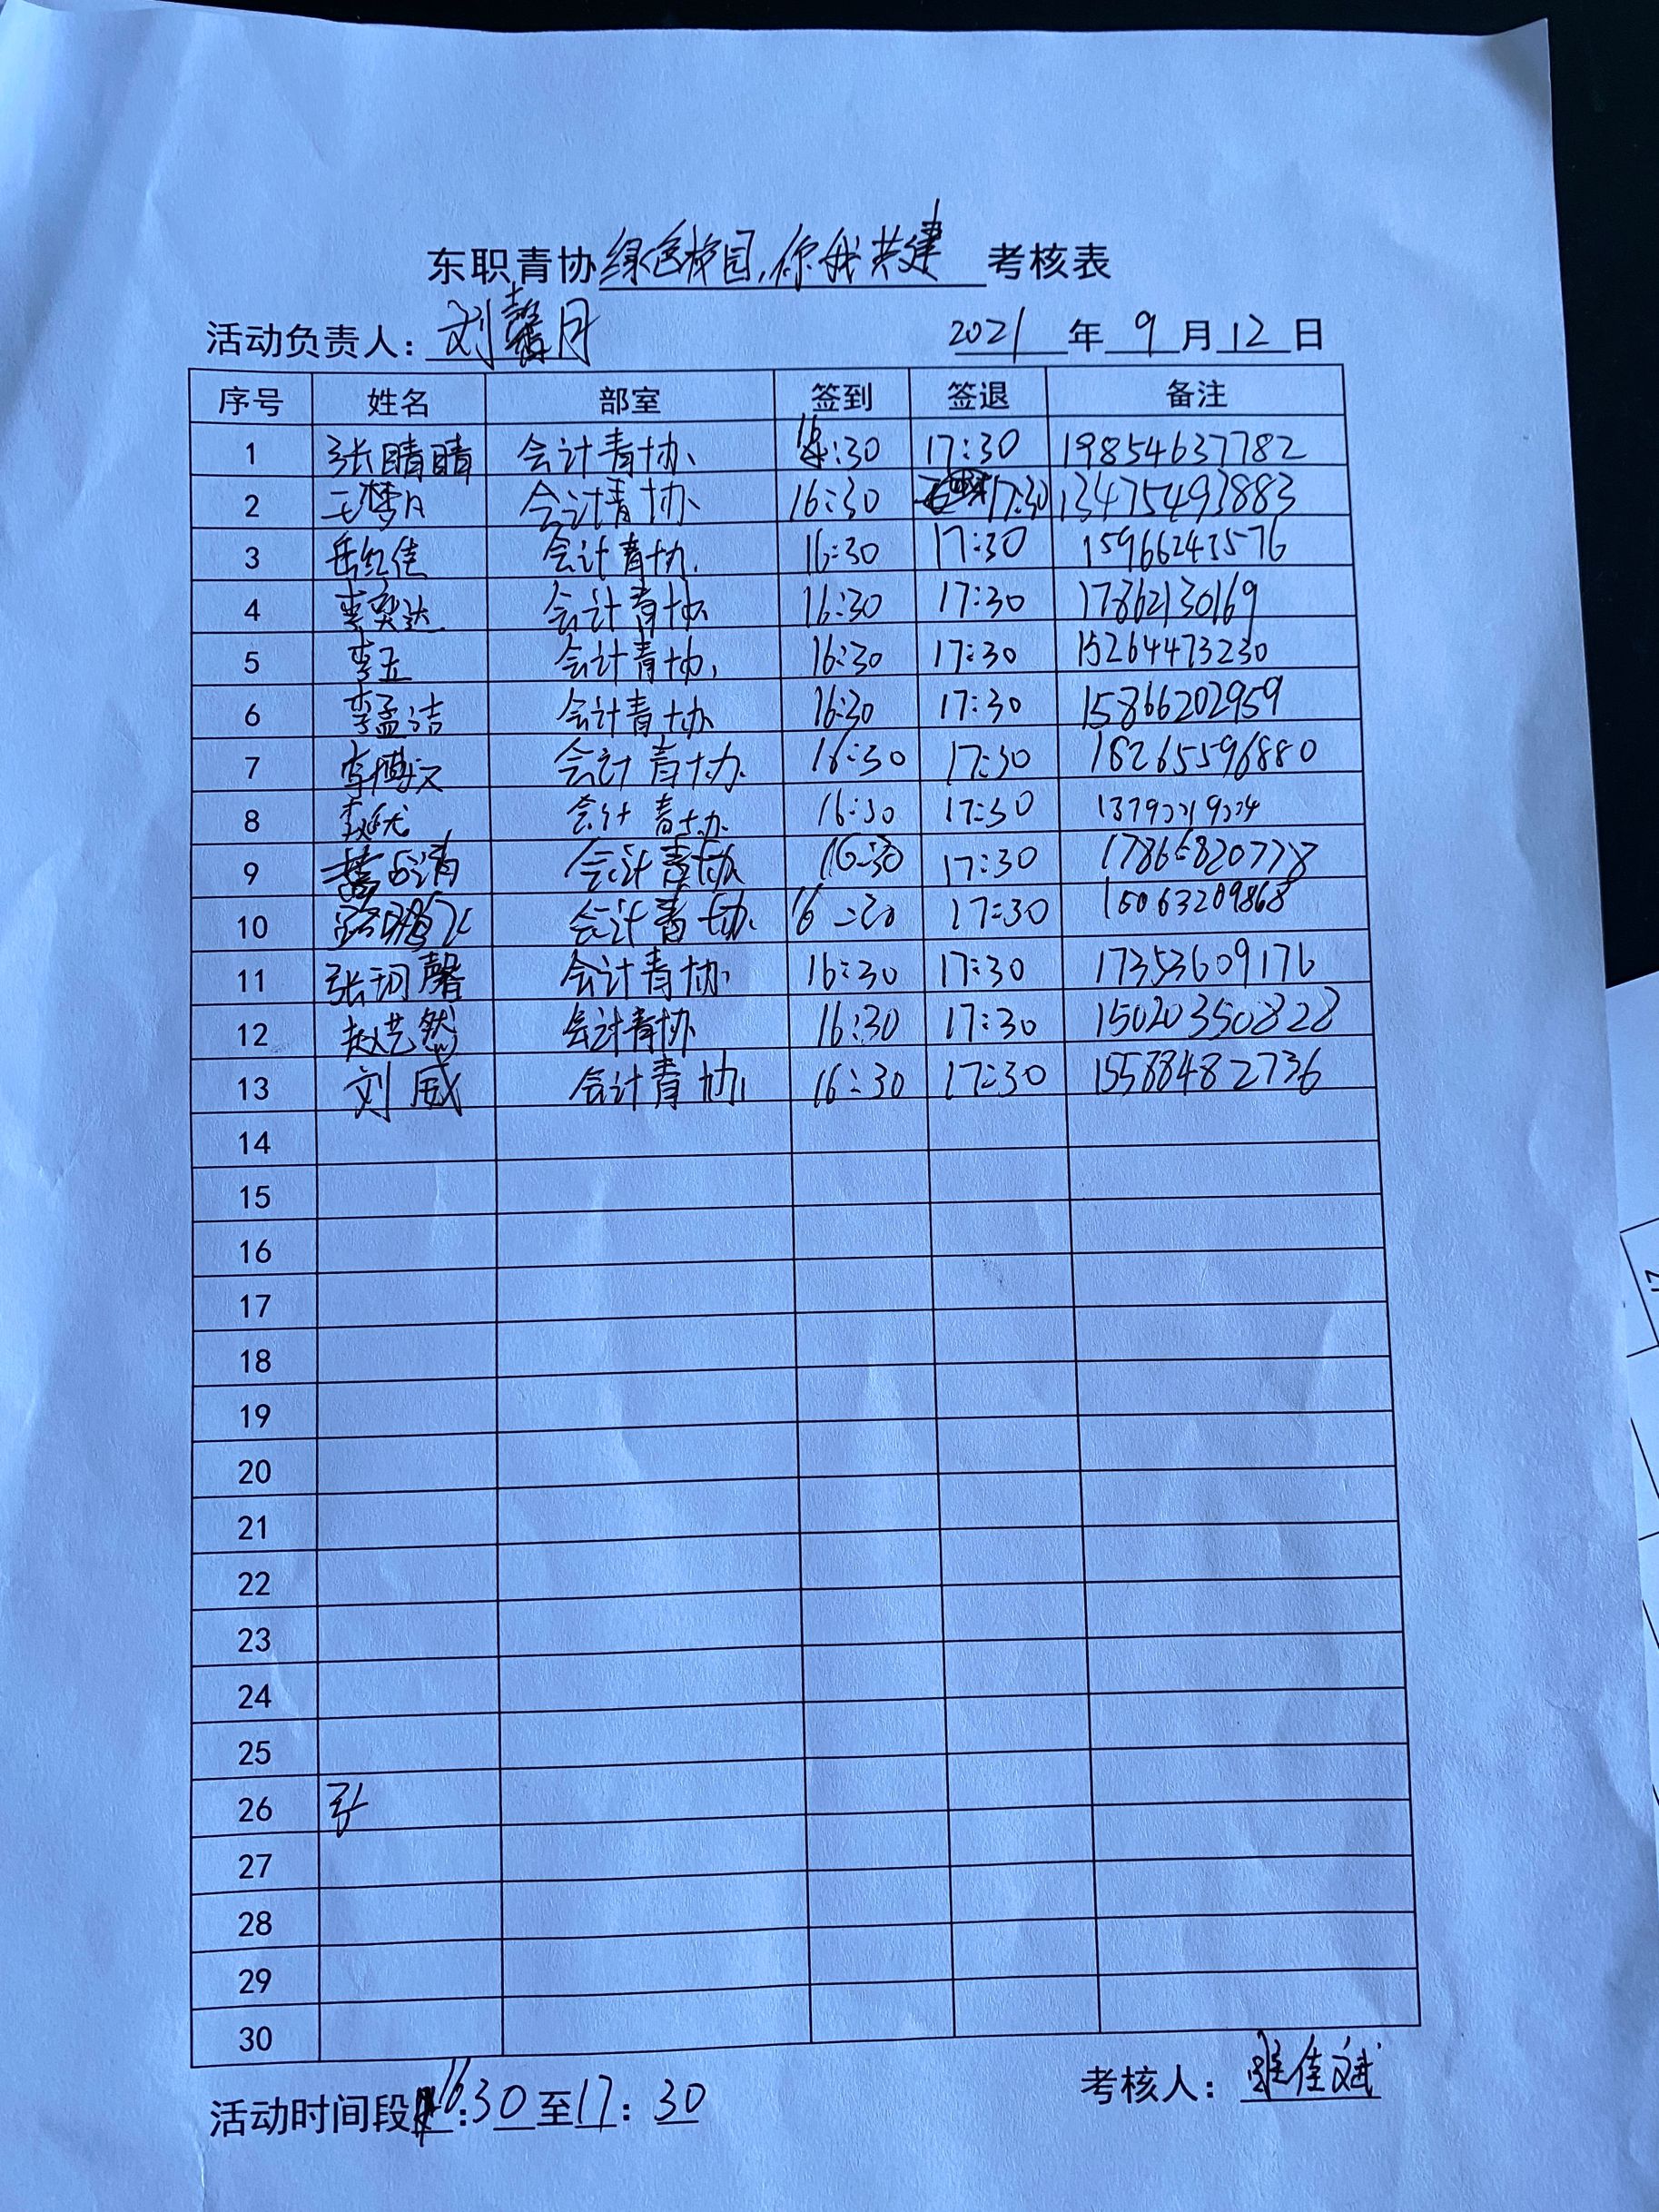 东职青协绿色校园,你我共建 考核表
活动负责人: 刘馨月 2021 年 9 月 12 日
序号 姓名 部室 签到 签退 备注
1 张晴晴 会计青协 16:30 17:30 19854637782
2 王梦月 会计青协 16:30 17:30 13475493883
3 岳红佳 会计青协 16:30 17:30 15966243576
4 李奕达 会计青协 16:30 17:30 17862130169
5 李五 会计青协 16:30 17:30 15264473230
6 李孟洁 会计青协 16:30 17:30 15866202959
7 李博文 会计青协 16:30 17:30 18265596880
8 会计青协 16:30 17:30
9 会计青协 16:30 17:30 17866820778
10 会计青协 16:30 17:30 15063209868
11 张玥馨 会计青协 16:30 17:30 17353609176
12 赵艺然 会计青协 16:30 17:30 15020350828
13 刘威 会计青协 16:30 17:30 15588482736
14
15
16
17
18
19
20
21
22
23
24
25
26
27
28
29
30
活动时间段16:30至17:30 考核人: 佳斌